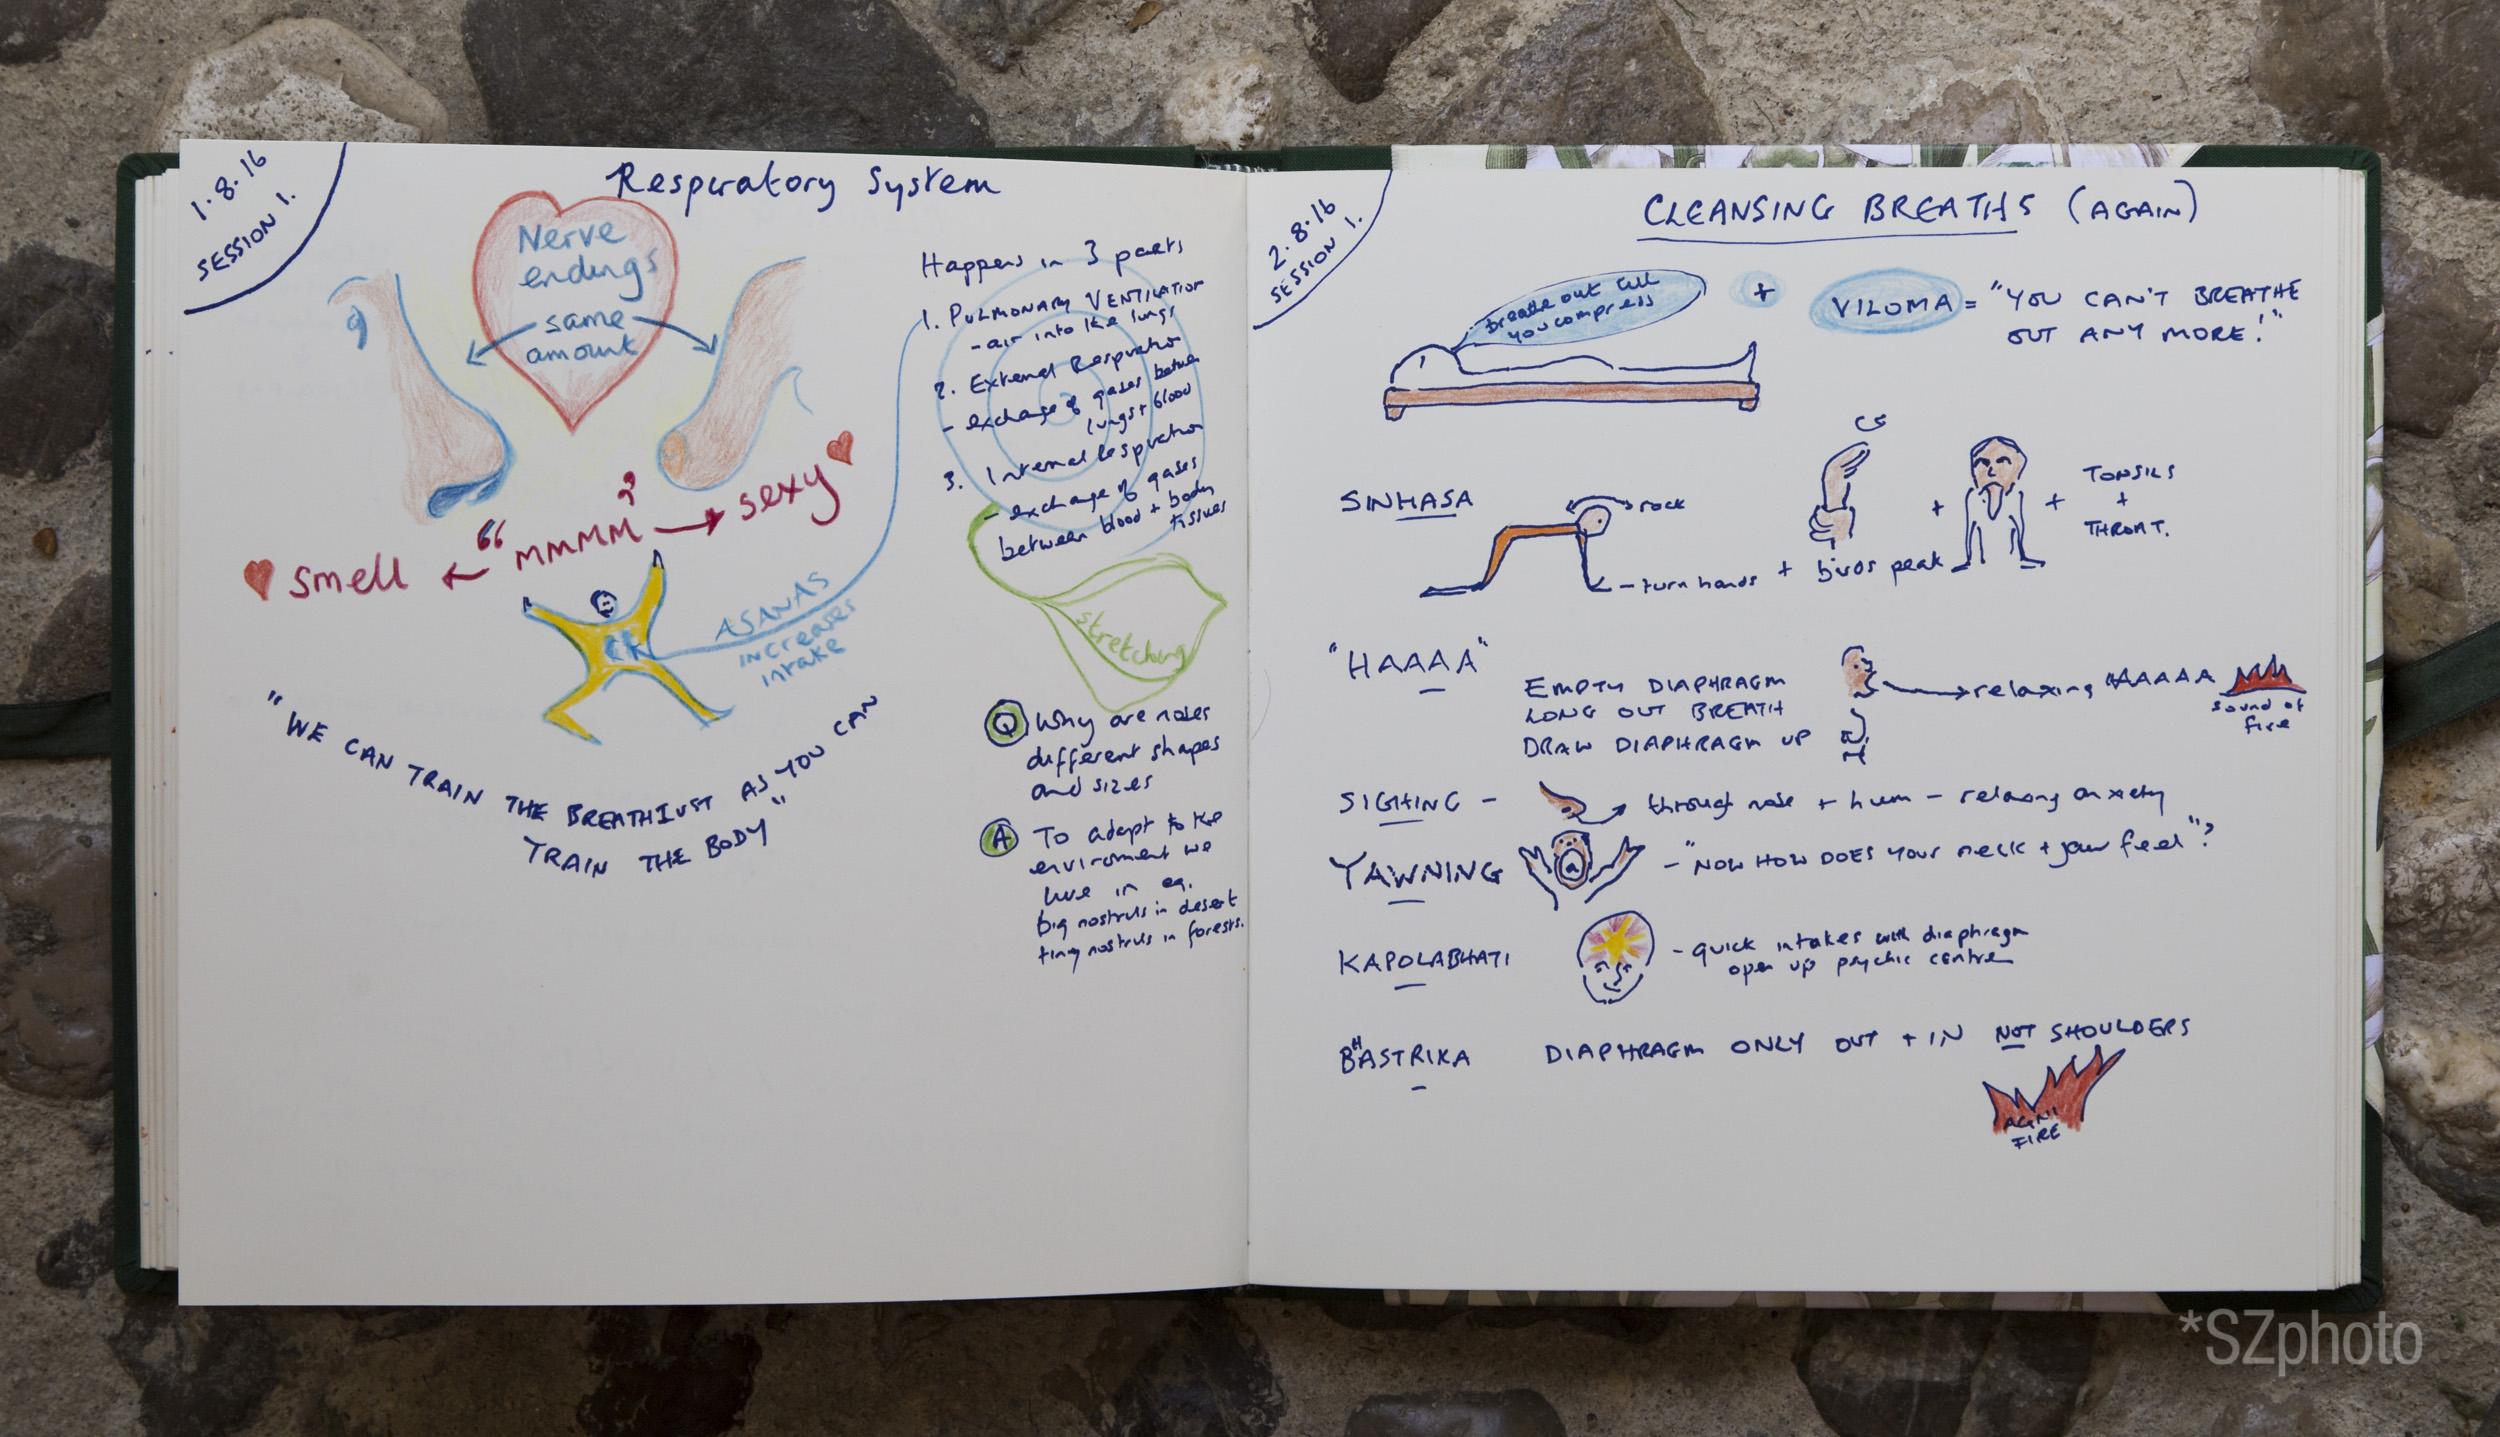 1.8.16
SESSION 1.
Respiratory System
Nerve
endings
same
amount
"mmmm"
smell
sexy
ASANAS
increases
intake
"WE CAN TRAIN THE BREATH JUST AS YOU CAN
TRAIN THE BODY"
Happens in 3 parts
1. PULMONARY VENTILATION
- air into the lungs
2. External Respiration
- exchange of gases between
lungs + blood
3. Internal Respiration
- exchange of gases
between blood + body
tissues
stretching
Q Why are noses
different shapes
and sizes
A To adapt to the
enviroment we
live in eg.
big nostrils in desert
tiny nostrils in forests.
2.8.16
SESSION 1.
CLEANSING BREATHS (AGAIN)
breathe out till
you compress
+ VILOMA = "YOU CAN'T BREATHE
OUT ANY MORE!"
SINHASA
rock
- turn hands + birds peak
+
+
TONSILS
+
THROAT.
"HAAAA"
EMPTY DIAPHRAGM
LONG OUT BREATH
DRAW DIAPHRAGM UP
relaxing HAAAAA
sound of
fire
SIGHING - through nose + hum - relaxing anxiety
YAWNING - "NOW HOW DOES your neck + jaw feel"?
KAPOLABHATI - quick intakes with diaphragm
open up psychic centre
BHASTRIKA DIAPHRAGM ONLY OUT + IN NOT SHOULDERS
AGNI
FIRE
*SZphoto